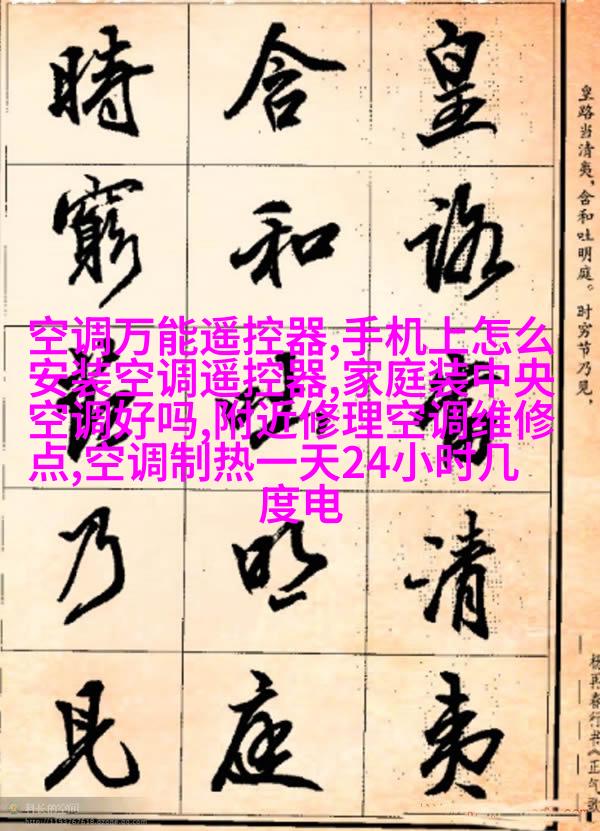 皇路當清夷
含和吐明庭
時窮節乃見
皇路当清夷，含和吐明庭。时穷节乃见，
杨再春行书《正气歌
空调万能遥控器,手机上怎么
安装空调遥控器,家庭装中央
空调好吗,附近修理空调维修
点,空调制热一天24小时几
度电
科长的空间